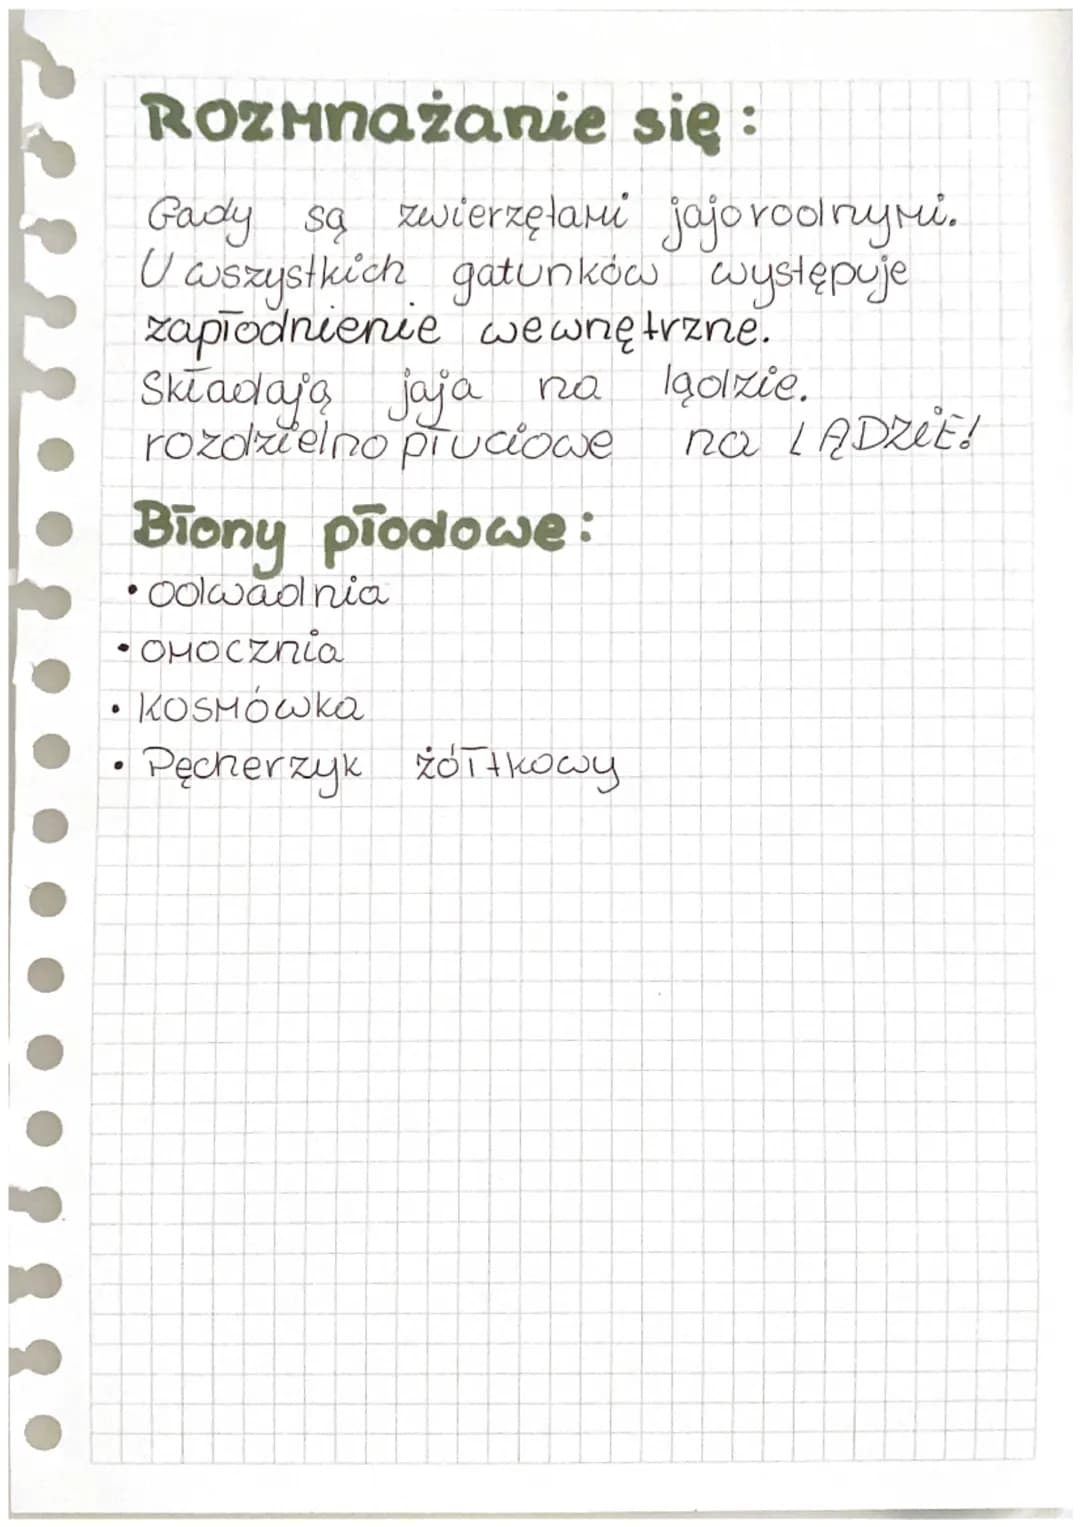 Rozmnażanie się:
Gady są zwierzętami jajorodnymi.
U wszystkich gatunków występuje
zapłodnienie wewnętrzne.
Składają jaja na lądzie.
rozdzielnopłuciowe na LĄDZIE!
Błony płodowe:
• odwadnia
• omocznia
• kosmówka
• Pęcherzyk żółtkowy